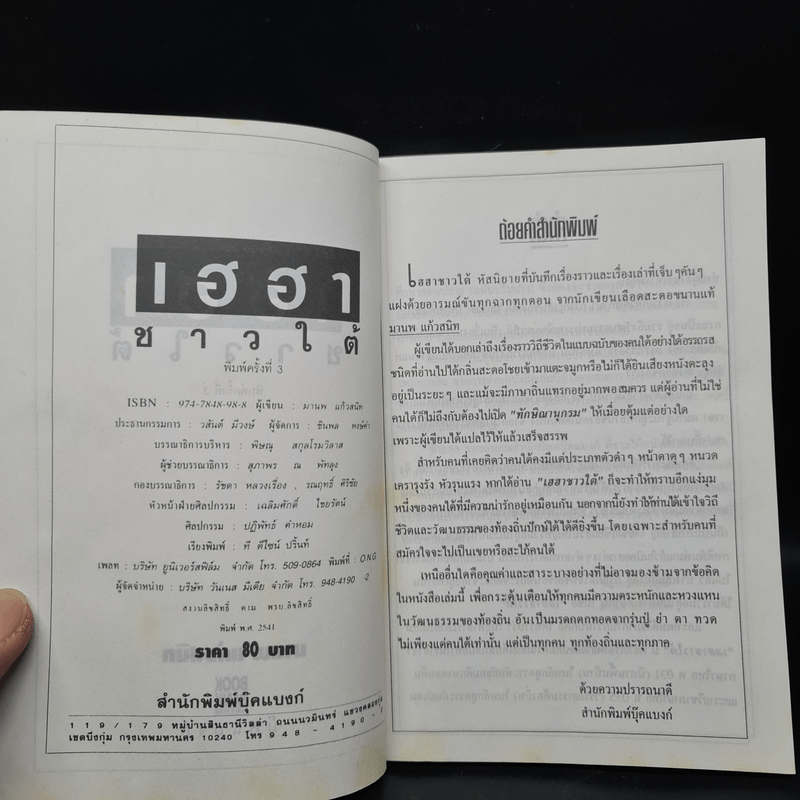 เฮฮา
ชาวใต้
พิมพ์ครั้งที่ 3
ISBN : 974-7848-98-8 ผู้เขียน : มานพ แก้วสนิท
ประธานกรรมการ : วสันต์ มีวงษ์ ผู้จัดการ : ชินพล หงษ์คำ
บรรณาธิการบริหาร : พิษณุ สกุลโรมวิลาส
ผู้ช่วยบรรณาธิการ : สุภาพร ณ พัทลุง
กองบรรณาธิการ : รัชดา หลวงเรื่อง , รณฤทธิ์ ศิริชัย
หัวหน้าฝ่ายศิลปกรรม : เฉลิมศักดิ์ ไชยรัตน์
ศิลปกรรม : ปฏิพัทธ์ คำหอม
เรียงพิมพ์ : ที ดีไซน์ ปริ้นท์
เพลท : บริษัท ยูนิเวอร์สฟิล์ม จำกัด โทร. 509-0864 พิมพ์ที่ : O.N.G
ผู้จัดจำหน่าย : บริษัท วันเนส มีเดีย จำกัด โทร. 948-4190 -2
สงวนลิขสิทธิ์ ตาม พรบ.ลิขสิทธิ์
พิมพ์ พ.ศ. 2541
ราคา 80 บาท
สำนักพิมพ์บุ๊คแบงก์
119/179 หมู่บ้านสินธานีวิลล่า ถนนนวมินทร์ แขวงคลองกุ่ม
เขตบึงกุ่ม กรุงเทพมหานคร 10240 โทร 948 - 4190 -
ถ้อยคำสำนักพิมพ์
เฮฮาชาวใต้ หัสนิยายที่บันทึกเรื่องราวและเรื่องเล่าที่เจ็บๆคันๆ
แฝงด้วยอารมณ์ขันทุกฉากทุกตอน จากนักเขียนเลือดสะตอขนานแท้
มานพ แก้วสนิท
ผู้เขียนได้บอกเล่าถึงเรื่องราววิถีชีวิตในแบบฉบับของคนใต้อย่างได้อรรถรส
ชนิดที่อ่านไปได้กลิ่นสะตอโชยเข้ามาแตะจมูกหรือไม่ก็ได้ยินเสียงหนังตะลุง
อยู่เป็นระยะๆ และแม้จะมีภาษาถิ่นแทรกอยู่มากพอสมควร แต่ผู้อ่านที่ไม่ใช่
คนใต้ก็ไม่ถึงกับต้องไปเปิด "ทักษิณานุกรม" ให้เมื่อยตุ้มแต่อย่างใด
เพราะผู้เขียนได้แปลไว้ให้แล้วเสร็จสรรพ
สำหรับคนที่เคยคิดว่าคนใต้คงมีแต่ประเภทตัวดำๆ หน้าคาดุๆ หนวด
เครารุงรัง หัวรุนแรง หากได้อ่าน "เฮฮาชาวใต้" ก็จะทำให้ทราบอีกแง่มุม
หนึ่งของคนใต้ที่มีความน่ารักอยู่เหมือนกัน นอกจากนี้ยังทำให้ท่านได้เข้าใจวิถี
ชีวิตและวัฒนธรรมของท้องถิ่นปักษ์ใต้ได้ดียิ่งขึ้น โดยเฉพาะสำหรับคนที่
สมัครใจจะไปเป็นเขยหรือสะใภ้คนใต้
เหนืออื่นใดคือคุณค่าและสาระบางอย่างที่ไม่อาจมองข้ามจากข้อคิด
ในหนังสือเล่มนี้ เพื่อกระตุ้นเตือนให้ทุกคนมีความตระหนักและหวงแหน
ในวัฒนธรรมของท้องถิ่น อันเป็นมรดกตกทอดจากรุ่นปู่ ย่า ตา ทวด
ไม่เพียงแต่คนใต้เท่านั้น แต่เป็นทุกคน ทุกท้องถิ่นและทุกภาค
ด้วยความปรารถนาดี
สำนักพิมพ์บุ๊คแบงก์